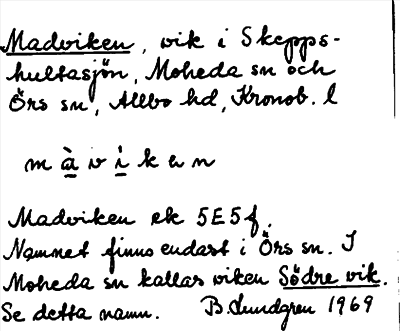 Madviken, vik i Skepps-
hultasjön, Moheda sn och
Örs sn, Allbo hd, Kronob. l
m à v i k e n
Madviken ek 5E5f.
Namnet finns endast i Örs sn. I
Moheda sn kallas viken Södre vik.
Se detta namn. B. Lundgren 1969